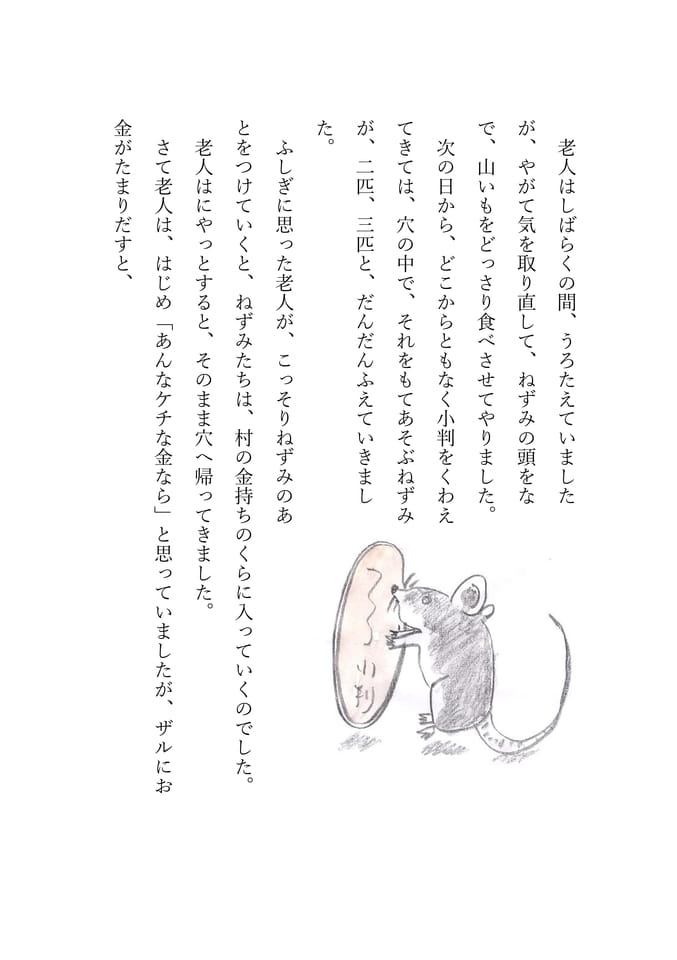 老人はしばらくの間、うろたえていました
が、やがて気を取り直して、ねずみの頭をな
で、山いもをどっさり食べさせてやりました。
次の日から、どこからともなく小判をくわえ
てきては、穴の中で、それをもてあそぶねずみ
が、二匹、三匹と、だんだんふえていきまし
た。
ふしぎに思った老人が、こっそりねずみのあ
とをつけていくと、ねずみたちは、村の金持ちのくらに入っていくのでした。
老人はにやっとすると、そのまま穴へ帰ってきました。
さて老人は、はじめ「あんなケチな金なら」と思っていましたが、ザルにお
金がたまりだすと、
小判